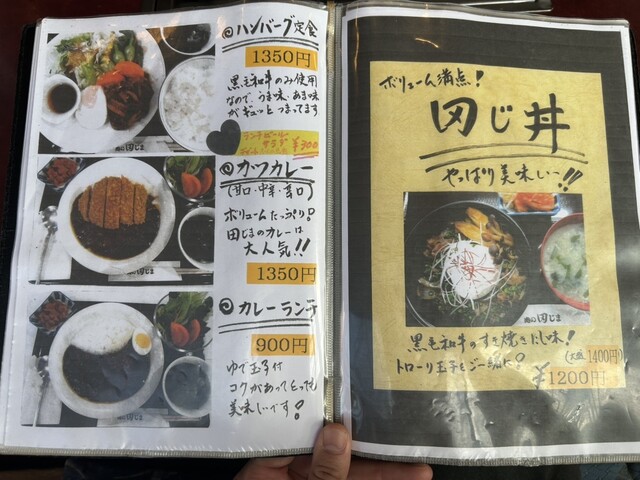 ハンバーグ定食
1350円
黒毛和牛のみ使用
なので、うま味、あま味
がギュッとつまってます
ランチビール
サラダ
¥300
カツカレー
(甘口・中辛・辛口)
ボリュームたっぷり!
田じまのカレーは
大人気!!
1350円
カレーランチ
900円
ゆで玉子付
コクがあってとっても
美味しいです!
田じま
田じま
田じま
ボリューム満点!
田じ丼
やっぱり美味しい〜!!
田じま
黒毛和牛のすき焼きだし味!
トローリ玉子を
(大盛 1400円)
¥1200円